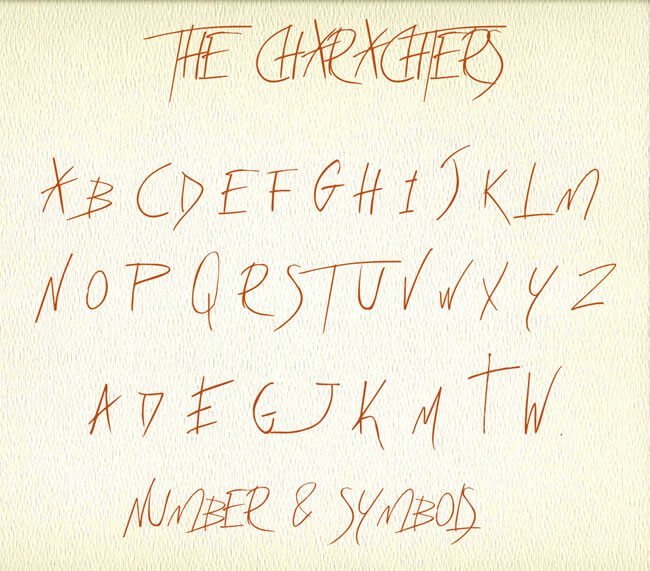 THE CHARACTERS
A B C D E F G H I J K L M
N O P Q R S T U V W X Y Z
A D E G J K M T W
NUMBER & SYMBOLS